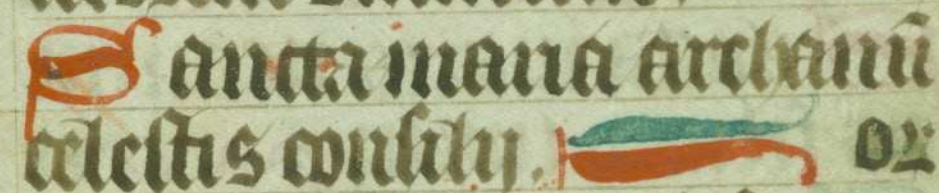 Sancta maria archanū
celestis consilij. or